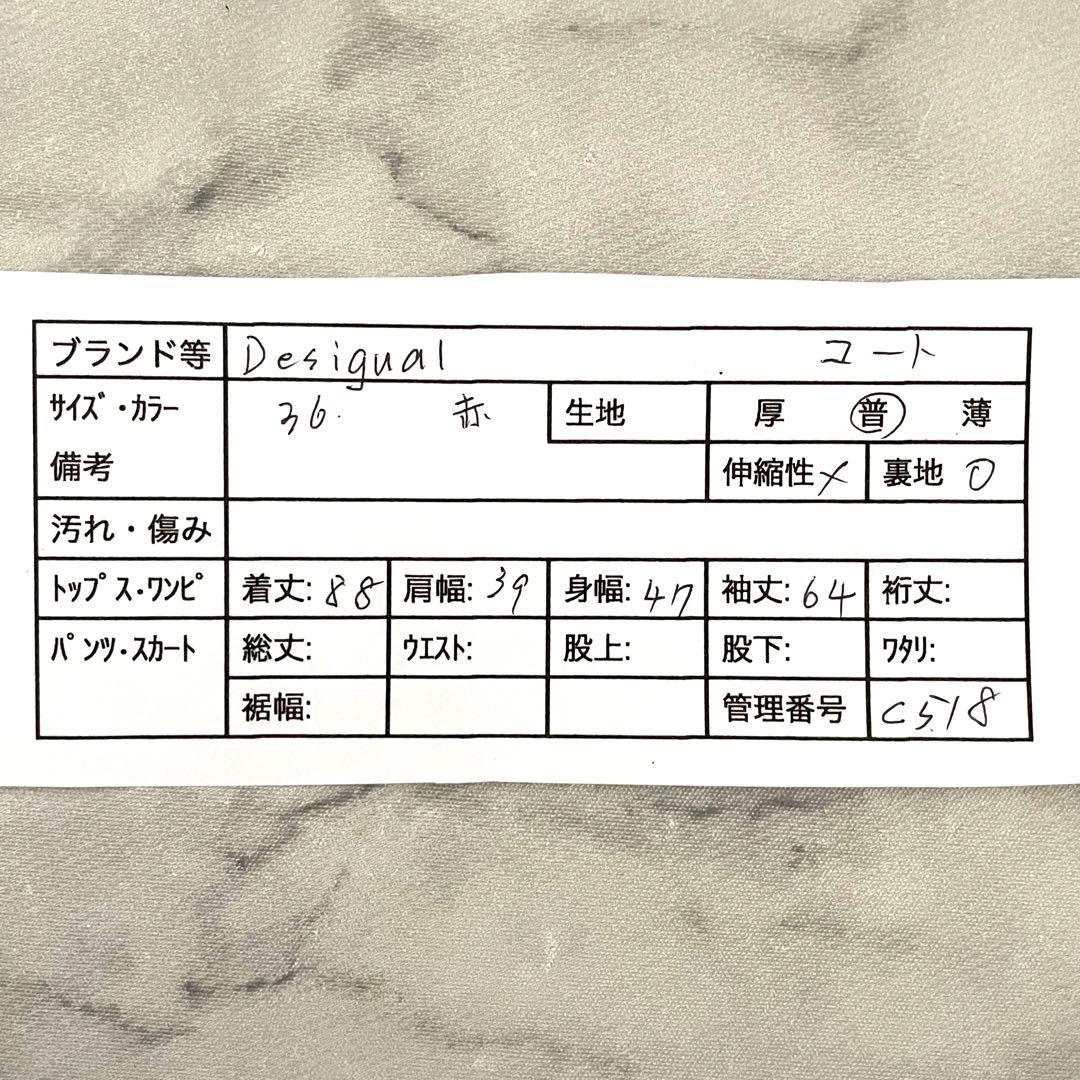 ブランド等 Desigual コート
サイズ・カラー 36. 赤 生地 厚 普 薄
備考 伸縮性 × 裏地 〇
汚れ・傷み
トップス・ワンピ 着丈: 88 肩幅: 39 身幅: 47 袖丈: 64 裄丈:
パンツ・スカート 総丈: ウエスト: 股上: 股下: ワタリ:
裾幅: 管理番号 C518